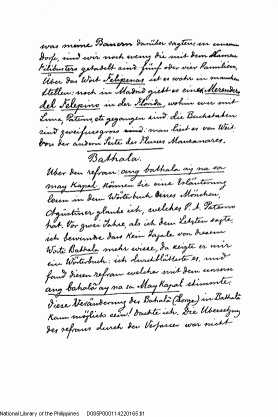 was meine Bauern darüber sagten; in einem
Dorfe, sind wir noch wenig die mit dem Namen
Filibusters getadelt sind fünf oder vier Familien.
Über das Wort Filipenas ist es wahr in manchen
Stellen: noch in Madrid giebt es einen Merendero
del Filipino in der Florida, wohin wir mit
Lune, Paterno etc gegangen sind die Buchstaben
sind zweifussgross und man liest es von Weit
von der andern Seite des Flusses Manzanares.
Bathala.
Über den refran: ang bathala ay na sa
may Kapal können Sie eine Erläuterung
lesen in dem Wörterbuch eines Mönchen,
Agustiner glaube ich, welches P. A. Paterno
hat. Vor zwei Jahre, als ich dem Letzten sagte,
ich bewundere dass kein Tagale von diesem
Worte Bathala mehr wisse, da zeigte er mir
ein Wörterbuch: ich durchblätterte es, und
fand diesen refran welcher mit dem unsern
ang bahalà ay na sa May Kapal stimmte.
Diese Veränderung des Bahalà (Sorge) in Bathalà
kann möglich sein! dachte ich. Die Übersetzung
des refrans durch den Verfasser war nicht
National Library of the Philippines